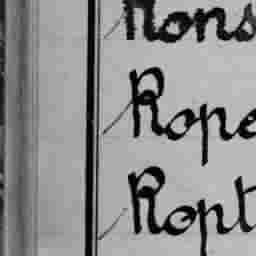 Rons
Rope
Ropt